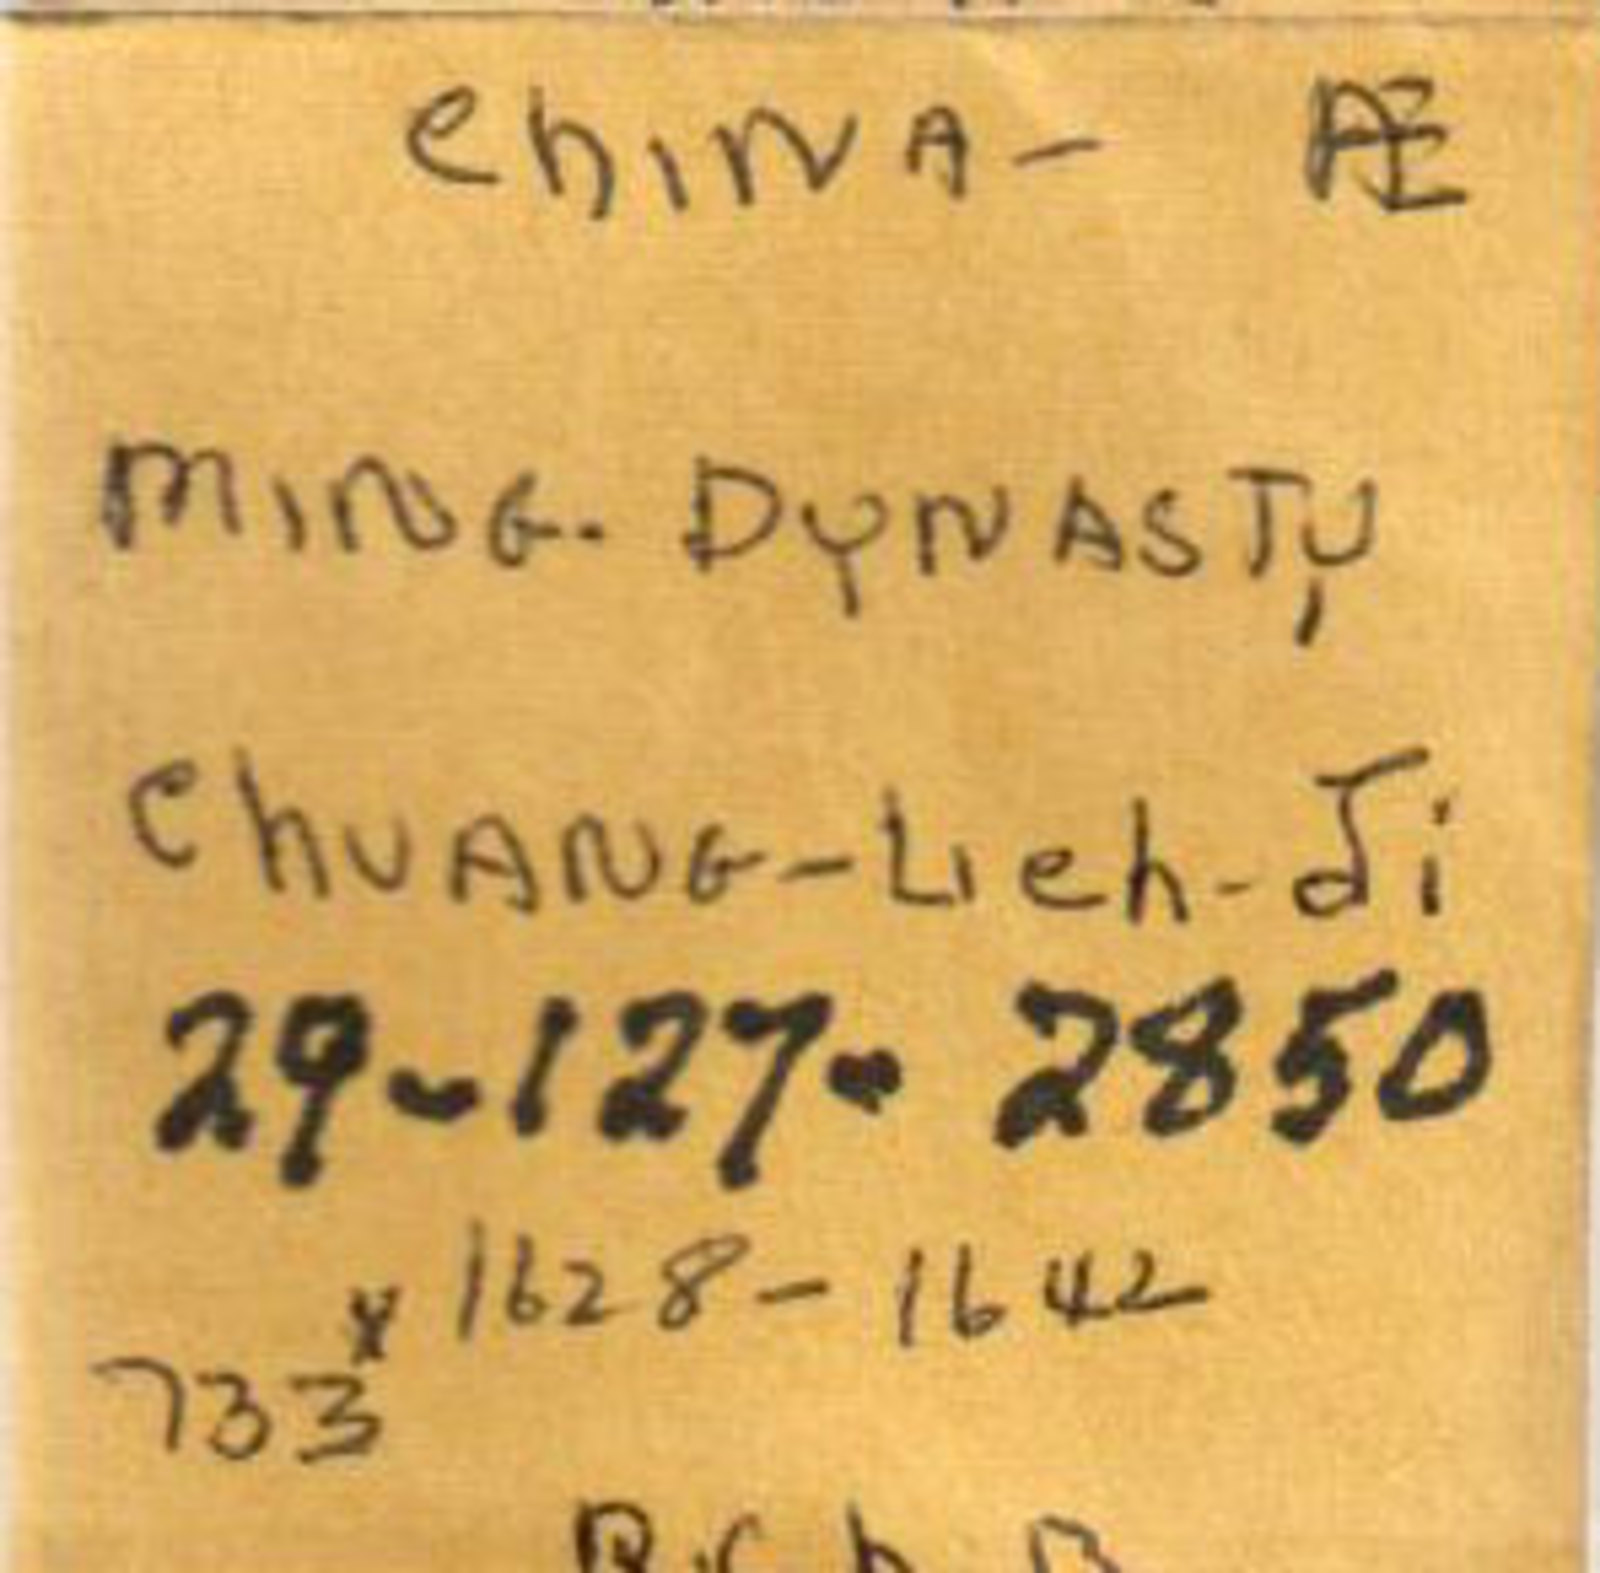 ChINA - Æ
MING. DYNASTY
ChUANG-Lieh-di
29-127- 2850
x 1628-1642
733